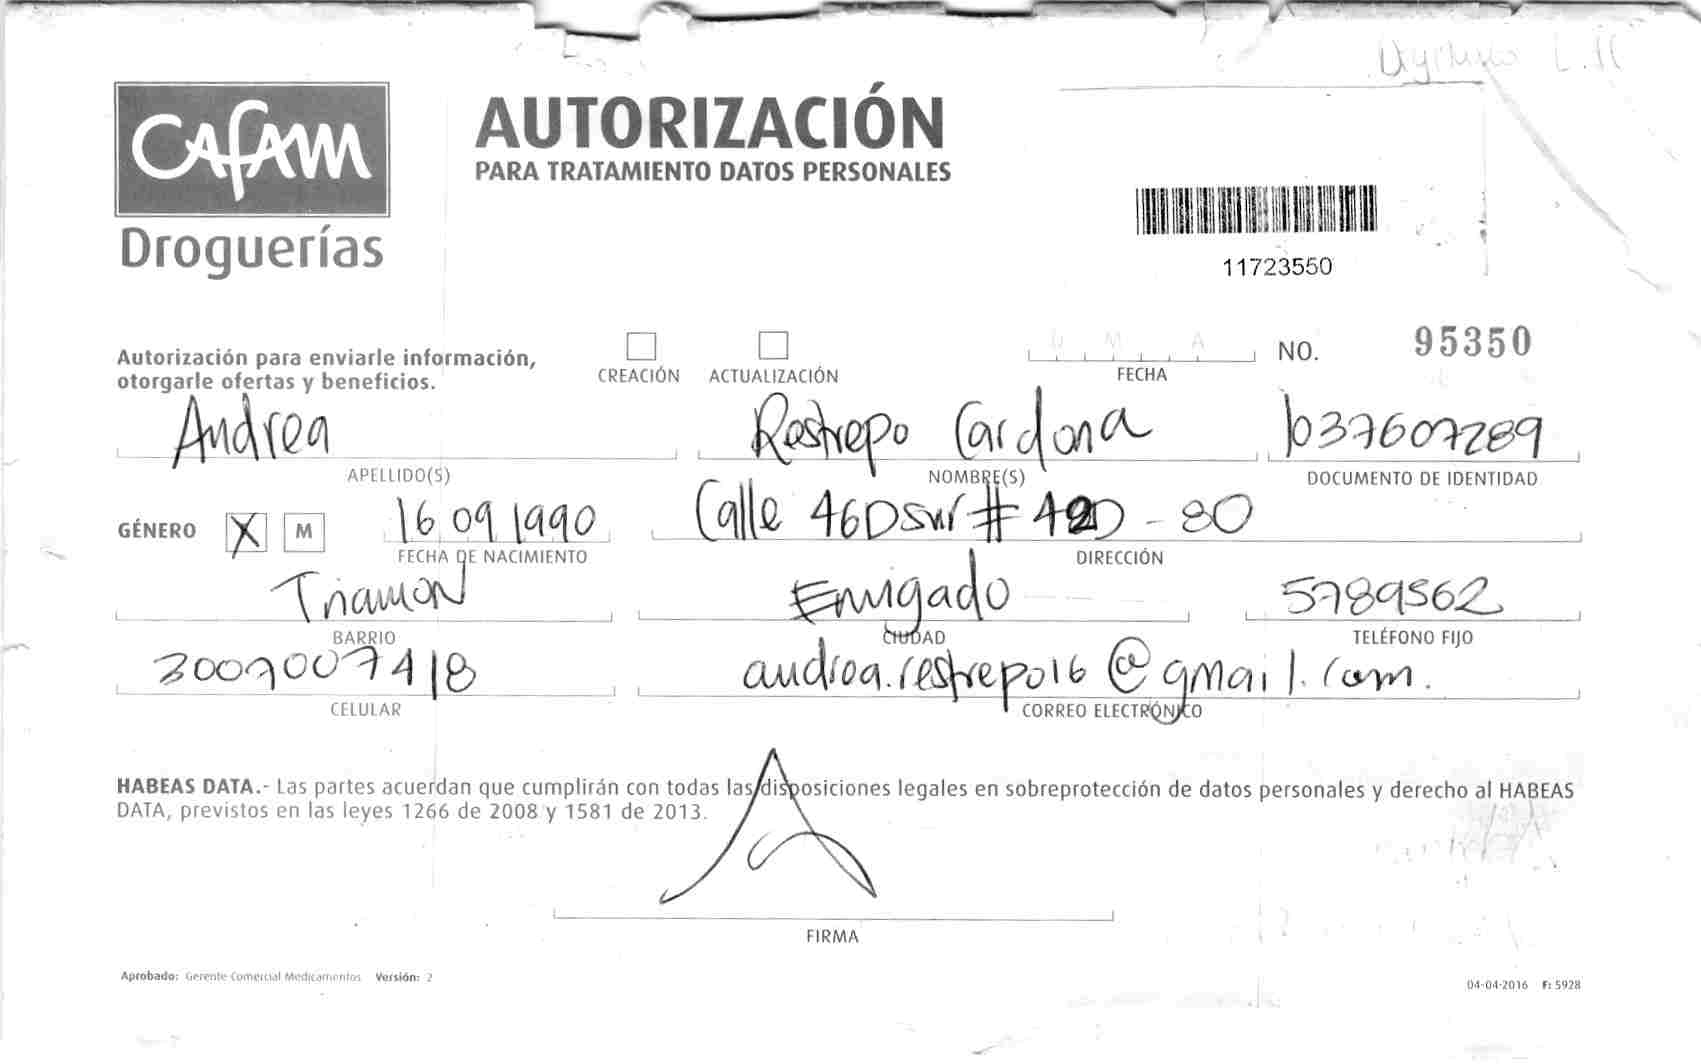 CAFAM
Droguerías
AUTORIZACIÓN
PARA TRATAMIENTO DATOS PERSONALES
11723550
Autorización para enviarle información,
otorgarle ofertas y beneficios.
CREACIÓN ACTUALIZACIÓN
D M A
FECHA
NO. 95350
Andrea Restrepo Cardona 1037607289
APELLIDO(S) NOMBRE(S) DOCUMENTO DE IDENTIDAD
GÉNERO X M 16 09 1990 Calle 46D sur # 42D - 80
FECHA DE NACIMIENTO DIRECCIÓN
Trianon Envigado 5789562
BARRIO CIUDAD TELÉFONO FIJO
3007007418 andrea.restrepo16@gmail.com.
CELULAR CORREO ELECTRÓNICO
HABEAS DATA.- Las partes acuerdan que cumplirán con todas las disposiciones legales en sobreprotección de datos personales y derecho al HABEAS
DATA, previstos en las leyes 1266 de 2008 y 1581 de 2013.
FIRMA
Aprobado: Gerente Comercial Medicamentos Versión: 2
04-04-2016 F: 5928